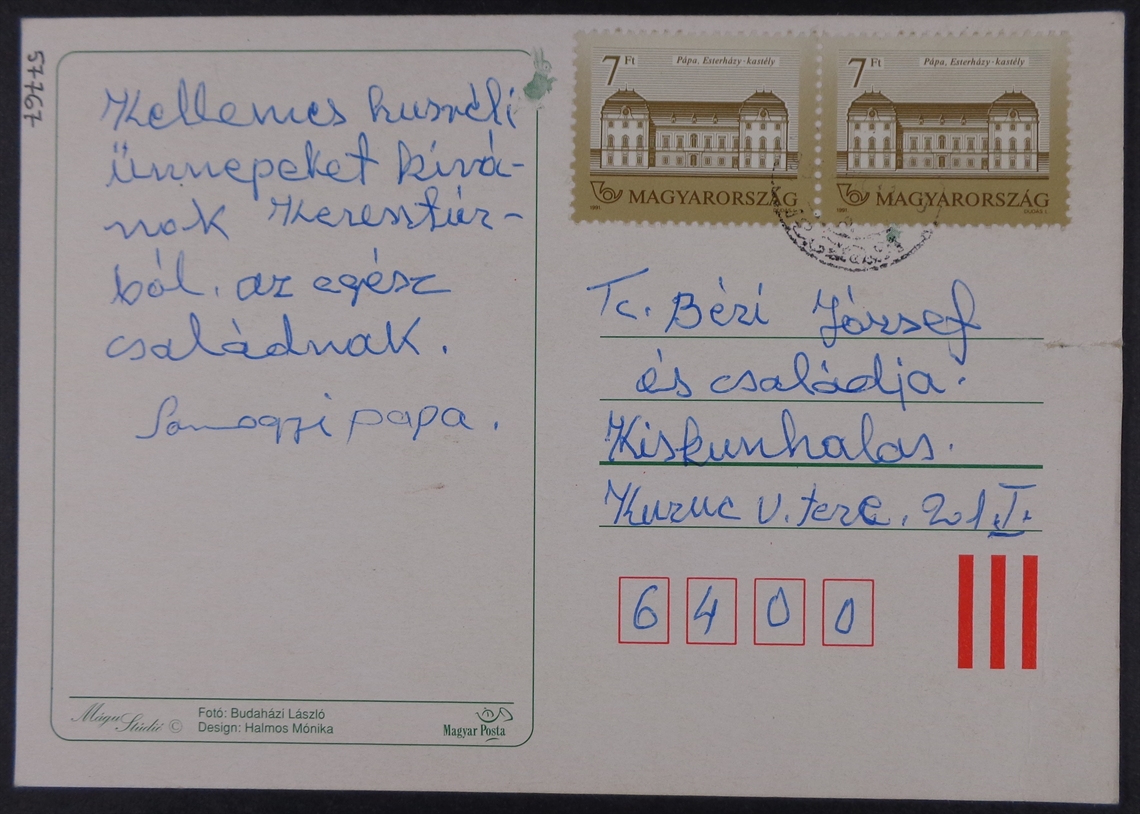 57767
Kellemes husvéti
ünnepeket kívá-
nok Keresztúr-
ból. az egész
családnak.
Somogyi papa.
Mágus Stúdió ©
Fotó: Budaházi László
Design: Halmos Mónika
Magyar Posta
7 Ft
Pápa, Esterházy-kastély
MAGYARORSZÁG
1991
7 Ft
Pápa, Esterházy-kastély
MAGYARORSZÁG
1991
DUDÁS L.
Tc. Bézi József
és családja.
Kiskunhalas.
Kuruc v. tere. 201.I.
6400